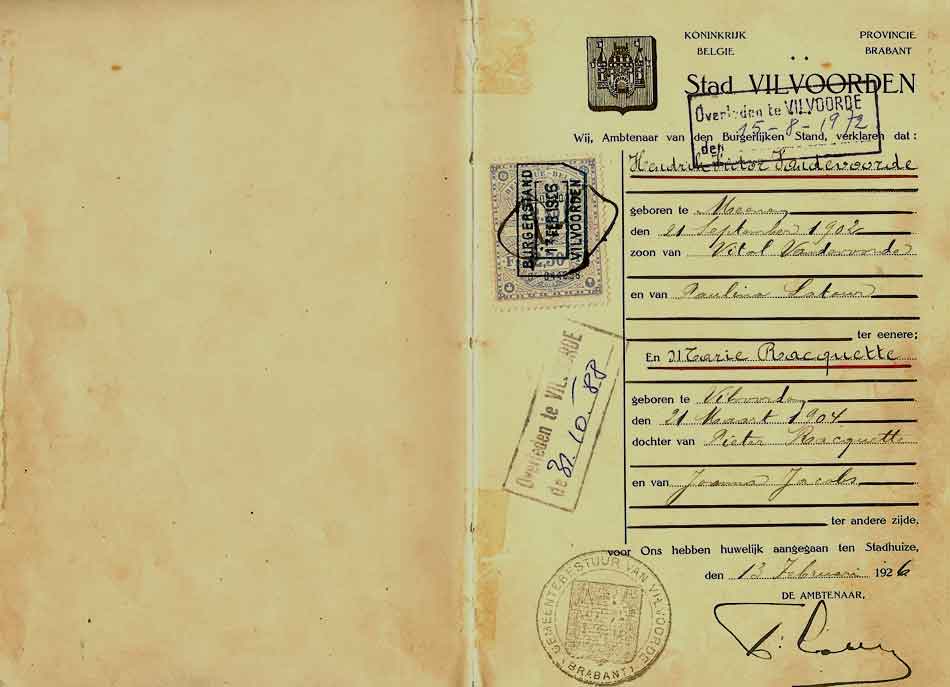 KONINKRIJK
BELGIE
PROVINCIE
BRABANT
Stad VILVOORDEN
Overleden te VILVOORDE
den 15-8-1972
Wij, Ambtenaar van den Burgerlijken Stand, verklaren dat :
Hendrik Victor Vandevoorde
geboren te
den 21 September 1902
zoon van Vital Vandevoorde
en van Paulina Latour
ter eenere;
En Marie Racquette
geboren te Vilvoorden
den 21 Maart 1904
dochter van Pieter Racquette
en van Joanna Jacobs
ter andere zijde,
voor Ons hebben huwelijk aangegaan ten Stadhuize,
den 13 Februari 1926
DE AMBTENAAR,
BURGERSTAND
FEB 1926
VILVOORDEN
Overleden te VILVOORDE
de 31.10.88
GEMEENTEBESTUUR VAN VILVOORDE
(BRABANT)